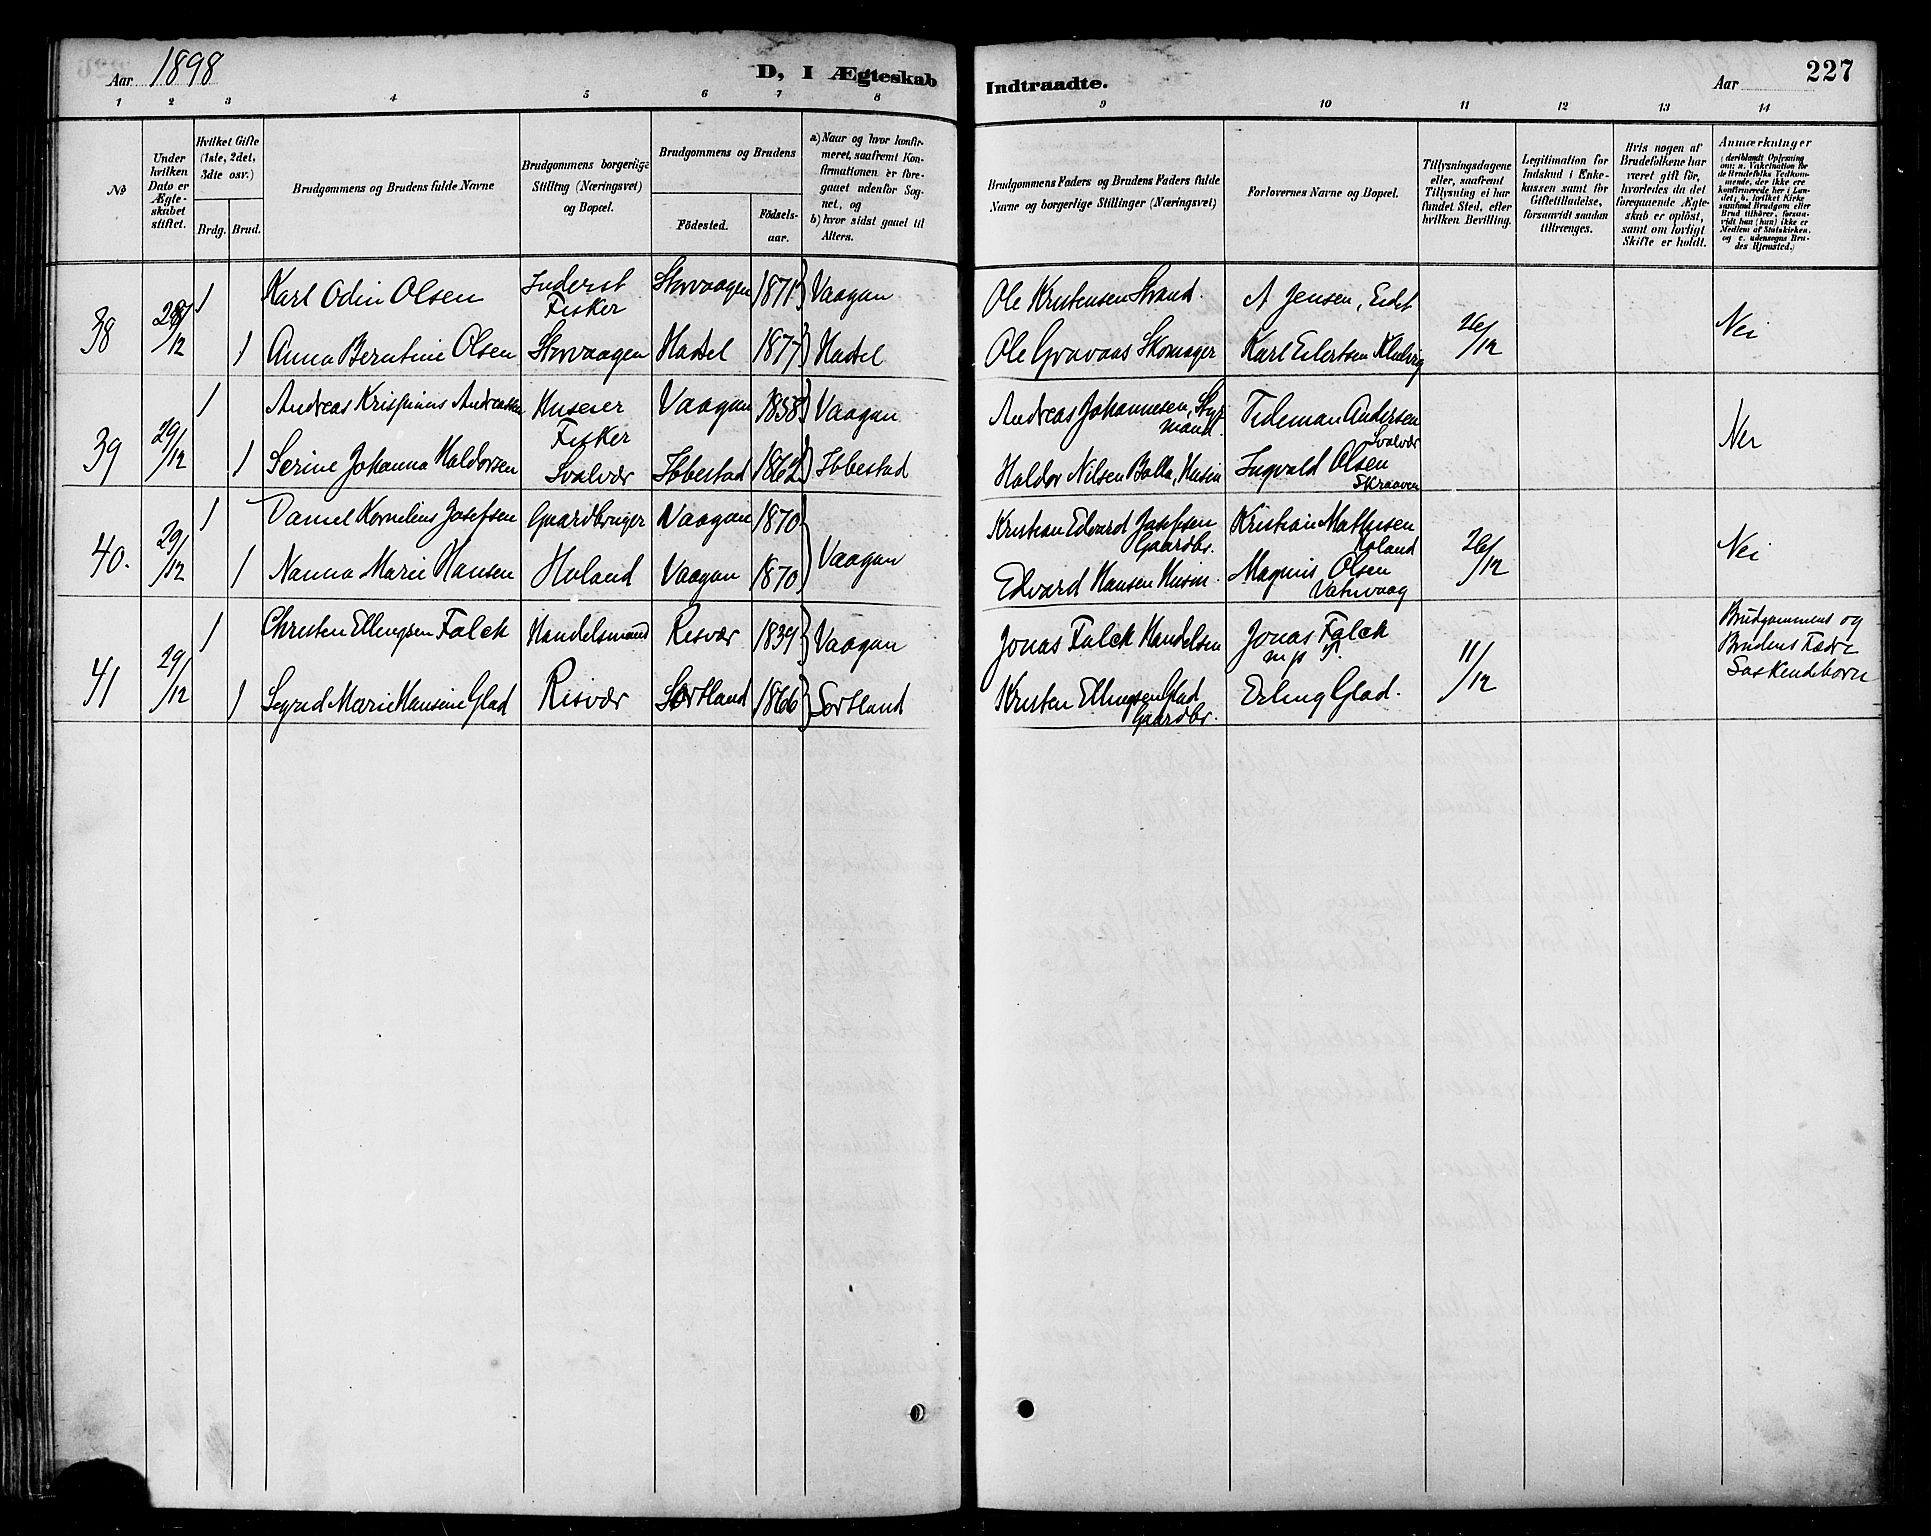 Aar 1898
D, I Ægteskab
Indtraadte.
Aar
227
1 2 3 4 5 6 7 8 9 10 11 12 13 14
No
Under hvilken Dato er Ægteskabet stiftet.
Hvilket Gifte (1ste, 2det, 3die osv.)
Brdg. Brud.
Brudgommens og Brudens fulde Navne
Brudgommens borgerlige Stilling (Næringsvei) og Bopæl.
Brudgommens og Brudens
Fødested.
Fødselsaar.
a) Naar og hvor konfirmeret, saafremt Konfirmationen er foregaaet udenfor Sognet, og
b) hvor sidst gaaet til Alters.
Brudgommens Faders og Brudens Faders fulde Navne og borgerlige Stillinger (Næringsvei)
Forlovernes Navne og Bopæl.
Tillysningsdagene eller, saafremt Tillysning ei har fundet Sted, efter hvilken Bevilling.
Legitimation for Indskud i Enkekassen samt for Giftetilladelse, forsaavidt saadan tiltrænges.
Hvis nogen af Brudefolkene har været gift før, hvorledes da det foregaaende Ægteskab er opløst, samt om lovligt Skifte er holdt.
Anmærkninger
(deriblandt Oplysning om: a. Vakcination for de Brudefolks Vedkommende, der ikke ere konfirmerede her i Landet; b. hvilket Kirkesamfund Brudgom eller Brud tilhører, forsaavidt han (hun) ikke er Medlem af Statskirken, og c. udensogns Brudes Hjemsted.)
38 28/12 1 Karl Odin Olsen Inderst Fisker Storvaagen 1871 Vaagan Ole Kristensen Strand. A Jensen, Eidet 26/12 Nei
1 Anna Berntine Olsen Storvaagen Hadsel 1877 Hadsel Ole Gravaas Skomager Karl Eilertsen
39 29/12 1 Andreas Krispinus Andreassen Huseier Fisker Vaagan 1858 Vaagan Andreas Johannesen, Styrmand. Tideman Andersen Svolvær Nei
1 Serine Johanna Haldorsen Svolvær Ibbestad 1862 Ibbestad Haldor Nilsen Balla, Husm Ingvald Olsen Skraaven
40. 29/12 1 Daniel Kornelius Josefsen Gaardbruger Vaagan 1870 Vaagan Kristian Edvard Josefsen Gaardbr. Kristian Mathisen Holand 26/12 Nei
1 Nanna Marie Hansen Holand Vaagan 1870 Edvard Hansen Husm. Magnus Olsen Vatnvaag
41 29/12 1 Christen Ellingsen Falck Handelsmand Risvær 1839 Vaagan Jonas Falck Handelsm Jonas Falck 11/12 Brudgommens og Brudens Fædre Søskendebørn
1 Sigrid Marie Hansine Glad Risvær Sortland 1866 Sortland Kristen Ellingsen Glad Gaardbr. Erling Glad.